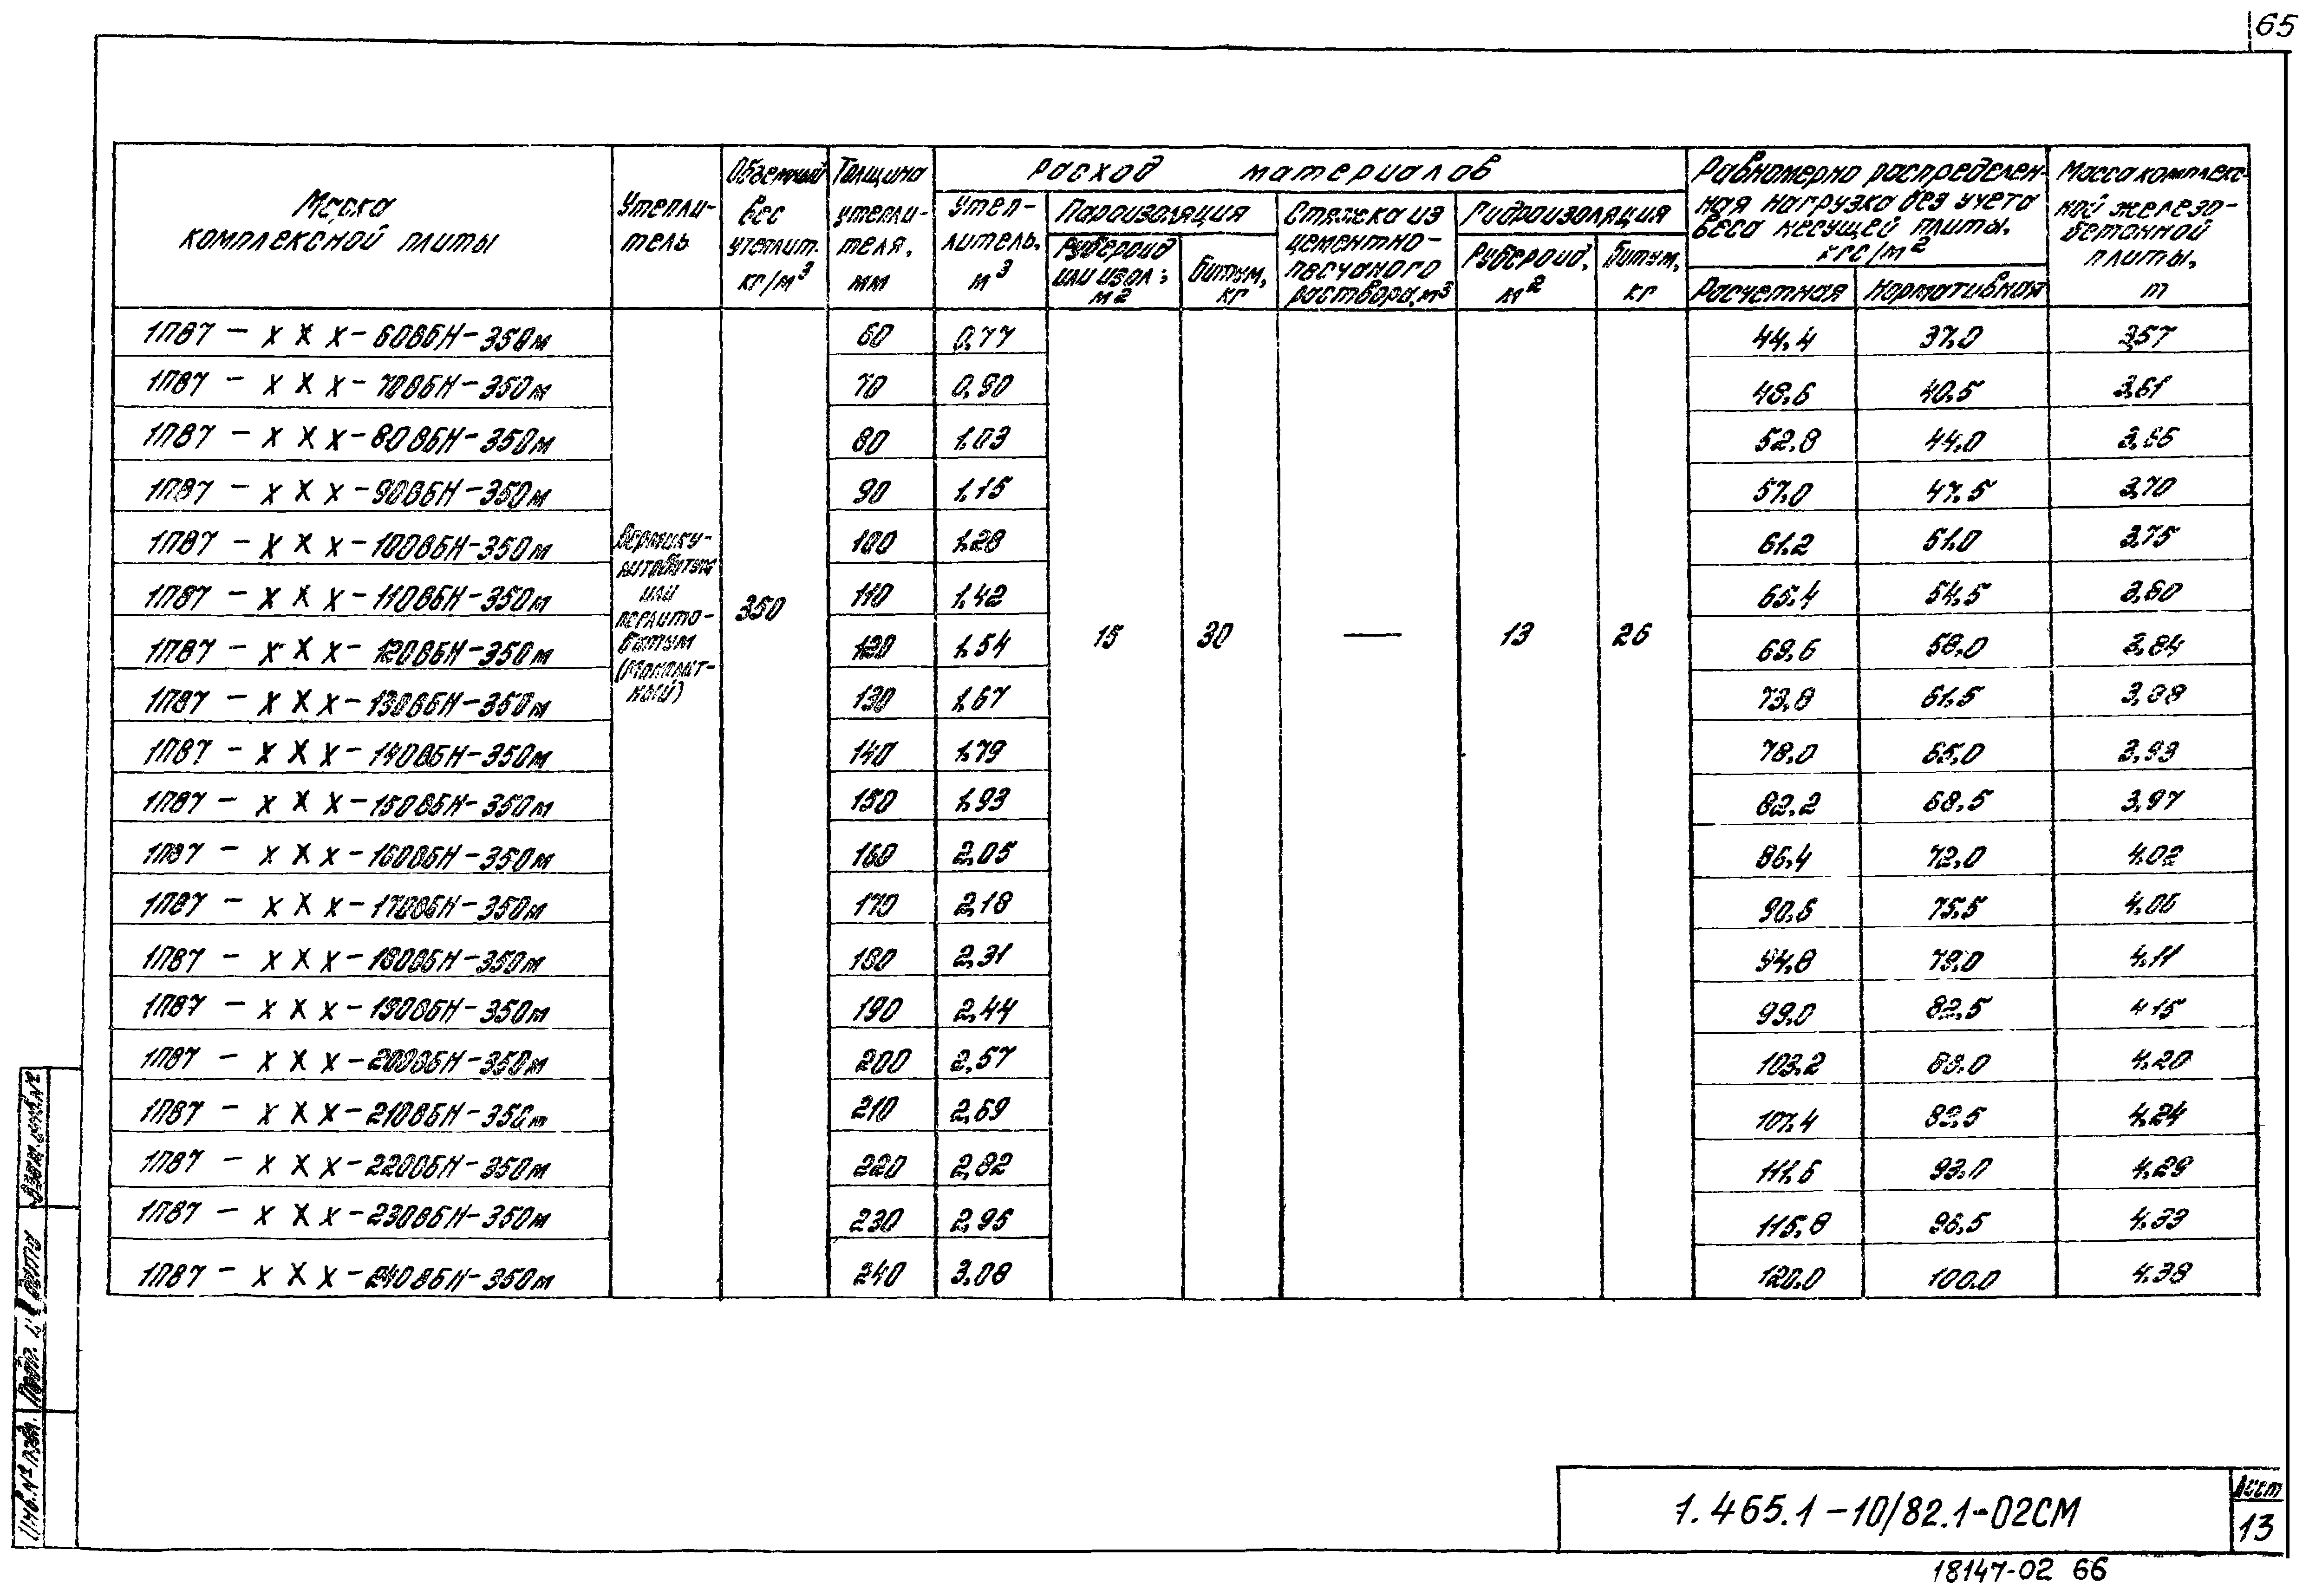 65
Марка комплексной плиты
Утеплитель
Объемный вес утеплит. кг/м³
Толщина утеплителя, мм
Расход материалов
Утеплитель, м³
Пароизоляция
Рубероид или изол; м²
Битум, кг
Стяжка из цементно-песчаного раствора, м³
Гидроизоляция
Рубероид, м²
Битум, кг
Равномерно распределенная нагрузка без учета веса несущей плиты, кгс/м²
Расчетная
Нормативная
Масса комплексной железобетонной плиты, т
1П87 - х х х - 60ВБН-350м 60 0,77 44,4 37,0 3,57
1П87 - х х х - 70ВБН-350м 70 0,90 48,6 40,5 3,61
1П87 - х х х - 80ВБН-350м 80 1,03 52,8 44,0 3,66
1П87 - х х х - 90ВБН-350м 90 1,15 57,0 47,5 3,70
1П87 - х х х - 100ВБН-350м 100 1,28 61,2 51,0 3,75
1П87 - х х х - 110ВБН-350м 110 1,42 65,4 54,5 3,80
Вермикулитобитум или перлитобитум (монолитный)
350
15 30 — 13 26
1П87 - х х х - 120ВБН-350м 120 1,54 69,6 58,0 3,84
1П87 - х х х - 130ВБН-350м 130 1,67 73,8 61,5 3,88
1П87 - х х х - 140ВБН-350м 140 1,79 78,0 65,0 3,93
1П87 - х х х - 150ВБН-350м 150 1,93 82,2 68,5 3,97
1П87 - х х х - 160ВБН-350м 160 2,05 86,4 72,0 4,02
1П87 - х х х - 170ВБН-350м 170 2,18 90,6 75,5 4,06
1П87 - х х х - 180ВБН-350м 180 2,31 94,8 79,0 4,11
1П87 - х х х - 190ВБН-350м 190 2,44 99,0 82,5 4,15
1П87 - х х х - 200ВБН-350м 200 2,57 103,2 4,20
1П87 - х х х - 210ВБН-350м 210 2,69 107,4 4,24
1П87 - х х х - 220ВБН-350м 220 2,82 111,6 93,0 4,29
1П87 - х х х - 230ВБН-350м 230 2,95 115,8 96,5 4,33
1П87 - х х х - 240ВБН-350м 240 3,08 120,0 100,0 4,38
Взам. инв. №
Подп. и дата
Инв. № подл.
1.465.1-10/82.1-02СМ
Лист
13
18147-02 66